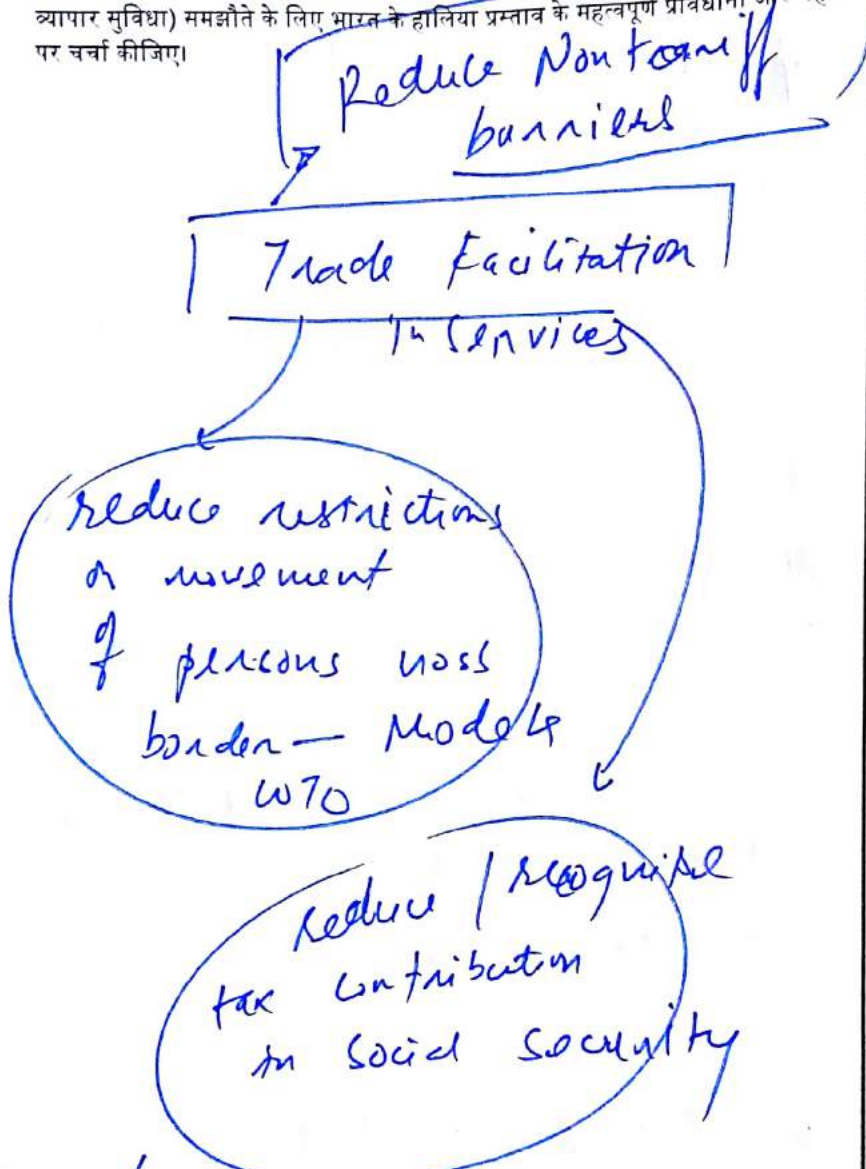 व्यापार सुविधा) समझौते के लिए भारत के हालिया प्रस्ताव के महत्वपूर्ण प्रावधानों
पर चर्चा कीजिए।
Reduce Non tariff
barriers
Trade Facilitation
In Services
reduce restrictions
on movement
of persons cross
border — Mode 4
WTO
reduce / recognise
tax contribution
in social security